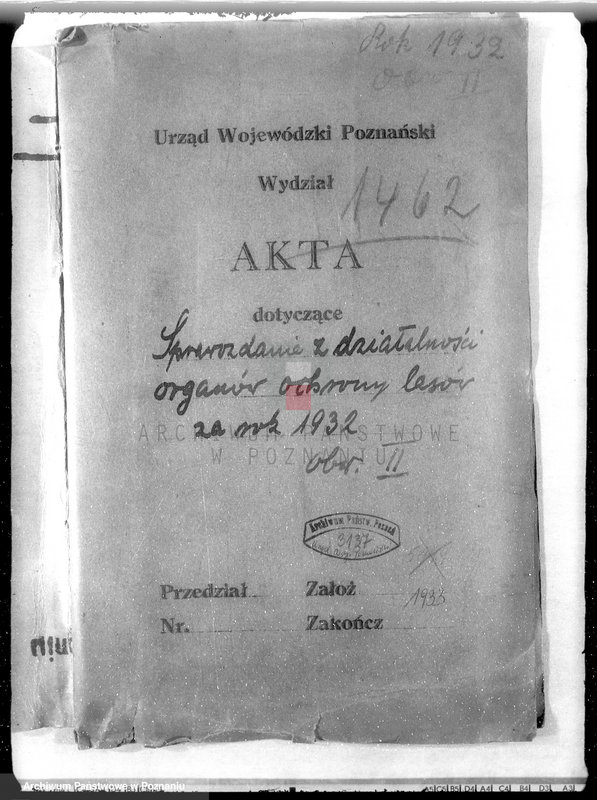 Rok 1932
II
Urząd Wojewódzki Poznański
Wydział
1462
AKTA
dotyczące
Sprawozdanie z działalności
organów ochrony lasów
za rok 1932
obw. II
ARCHIWUM PAŃSTWOWE
W POZNANIU
Archiwum Państw. Poznań
3137
Przedział Założ 1933
Nr. Zakończ
Archiwum Państwowe w Poznaniu
A5 C5 B5 D4 A4 C4 B4 D3 A3